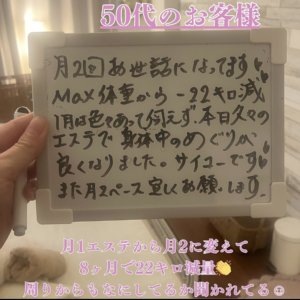 50代のお客様
月2回お世話になってます
Max体重から-22キロ減
1月は色々あって伺えず、本日久々の
エステで身体中のめぐりが
良くなりました。サイコーです
また月2ペース宜しくお願いします
月1エステから月2に変えて
8ヶ月で22キロ減量👏
周りからもなにしてるか聞かれてる☺